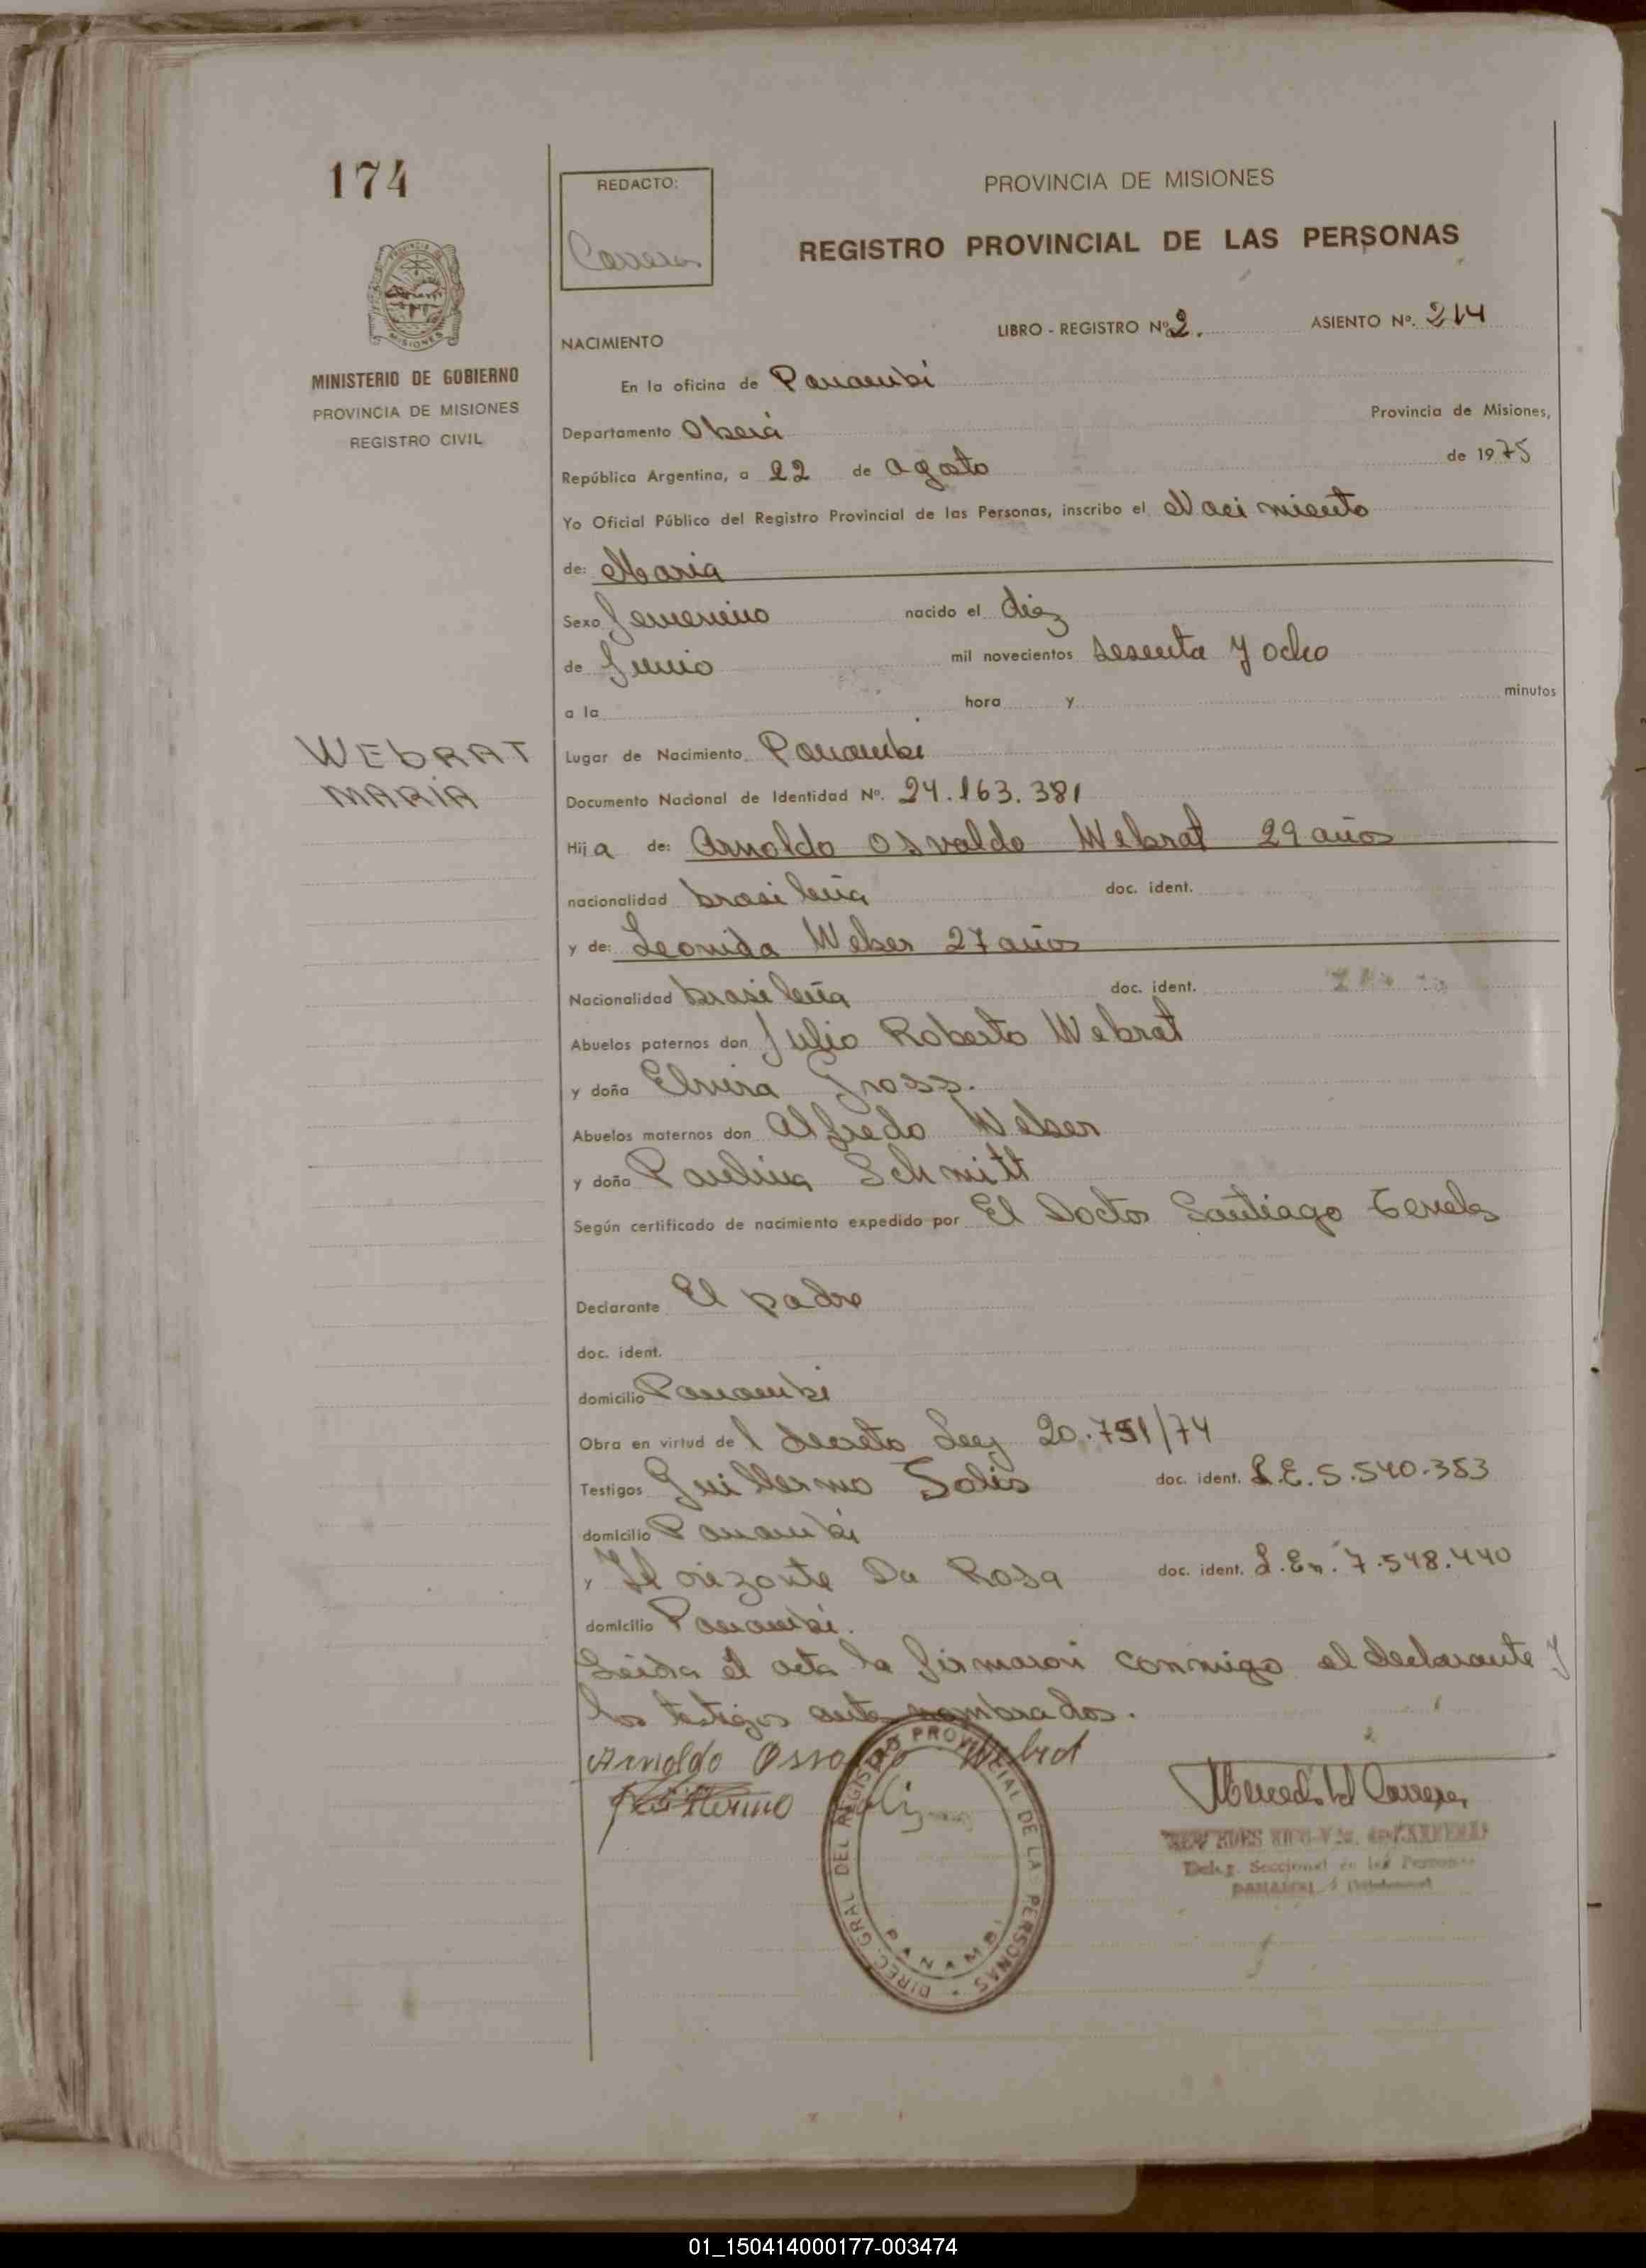 174
REDACTO:
Carrera
PROVINCIA DE MISIONES
REGISTRO PROVINCIAL DE LAS PERSONAS
PROVINCIA
MISIONES
MINISTERIO DE GOBIERNO
PROVINCIA DE MISIONES
REGISTRO CIVIL
LIBRO - REGISTRO Nº 2. ASIENTO Nº. 214
NACIMIENTO
En la oficina de Panambi
Departamento Oberá Provincia de Misiones,
República Argentina, a 22 de agosto de 1975
Yo Oficial Público del Registro Provincial de las Personas, inscribo el Nacimiento
de: Maria
Sexo femenino nacido el diez
de Junio mil novecientos sesenta y ocho
a la hora y minutos
WEbRAT
MARIA
Lugar de Nacimiento Panambi
Documento Nacional de Identidad Nº. 24.163.381
Hija de: Arnoldo Osvaldo Webrat 29 años
nacionalidad brasileña doc. ident.
y de: Leonida Weber 27 años
Nacionalidad brasileña doc. ident.
Abuelos paternos don Julio Roberto Webrat
y doña Elvira Gross.
Abuelos maternos don Alfredo Weber
y doña Paulina Schmitt
Según certificado de nacimiento expedido por El Doctor Santiago
Declarante El padre
doc. ident.
domicilio Panambi
Obra en virtud del decreto Ley 20.751/74
Testigos Guillermo Solis doc. ident. L.E. 5.540.383
domicilio Panambi
y Horizonte Da Rosa doc. ident. L.En. 7.548.440
domicilio Panambi.
Leida el acta la firmaron conmigo el declarante y
los testigos ante nombrados.
Arnoldo Osvaldo Webrat
Guillermo Solis
DIREC. GRAL DEL REGISTRO PROVINCIAL DE LAS PERSONAS
PANAMBI
Mercedes Carrera
Deleg. Seccional de las Personas
01_150414000177-003474